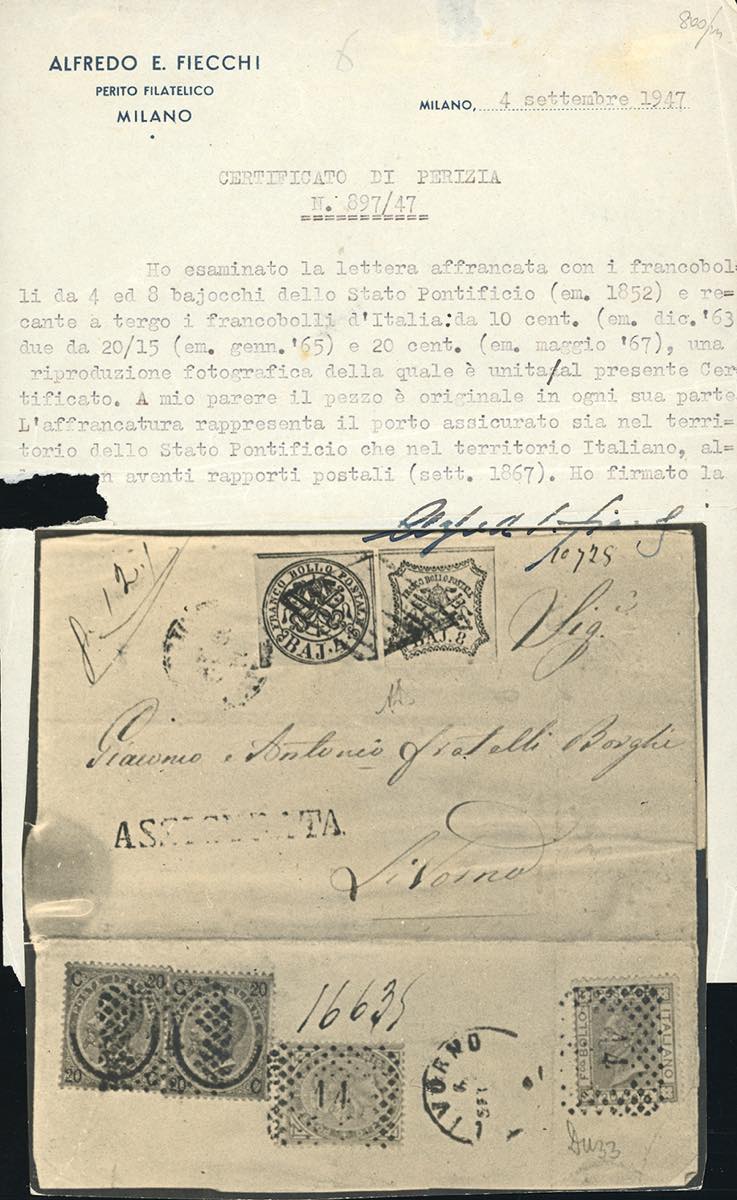 800/m
ALFREDO E. FIECCHI
PERITO FILATELICO
MILANO
MILANO, 4 settembre 1947
CERTIFICATO DI PERIZIA
N. 897/47
Ho esaminato la lettera affrancata con i francobol=
li da 4 ed 8 bajocchi dello Stato Pontificio (em. 1852) e re=
cante a tergo i francobolli d'Italia: da 10 cent. (em. dic. '63
due da 20/15 (em. genn. '65) e 20 cent. (em. maggio '67), una
riproduzione fotografica della quale è unita/al presente Cer
tificato. A mio parere il pezzo è originale in ogni sua parte
L'affrancatura rappresenta il porto assicurato sia nel terri=
torio dello Stato Pontificio che nel territorio Italiano, al=
aventi rapporti postali (sett. 1867). Ho firmato la
10725
FRANCO BOLLO POSTALE
BAJ. 4
FRANCO BOLLO POSTALE
BAJ. 8
Sig.
Giacomo e Antonio fratelli Borghi
ASSICURATA
Livorno
C 20 20 C
C 20 20 C
16635
14
LIVORNO
SET
Fco BOLLO
ITALIANO